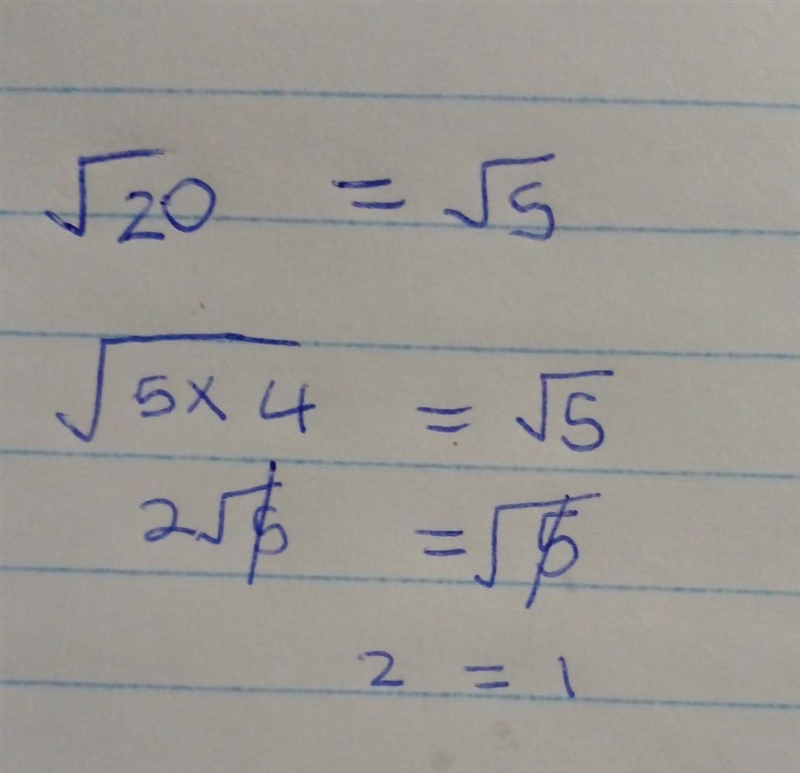 √20 = √5
√5×4 = √5
2√5 = √5
2 = 1